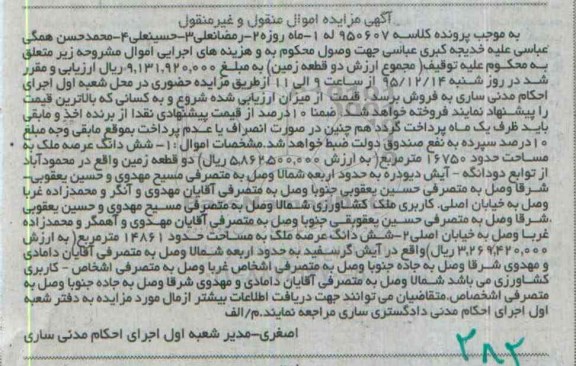 آگهی مزایده اموال منقول و غیرمنقول
به موجب پرونده کلاسه ۹۵۰۶۰۷ له ۱-ماه روزه۲-رمضانعلی۳-حسینعلی۴-محمدحسن همگی
عباسی علیه خدیجه کبری عباسی جهت وصول محکوم به و هزینه های اجرایی اموال مشروحه زیر متعلق
به محکوم علیه توقیف( مجموع ارزش دو قطعه زمین) به مبلغ ۹,۱۳۱,۹۲۰,۰۰۰ریال ارزیابی و مقرر
شد در روز شنبه ۹۵/۱۲/۱۴ از ساعت ۹ الی ۱۱ ازطریق مزایده حضوری در محل شعبه اول اجرای
احکام مدنی ساری به فروش برسد . قیمت از میزان ارزیابی شده شروع و به کسانی که بالاترین قیمت
را پیشنهاد نمایند فروخته خواهد شد ضمنا ۱۰درصد از قیمت پیشنهادی نقدا از برنده اخذ و مابقی
باید ظرف یک ماه پرداخت گردد هم چنین در صورت انصراف یا عدم پرداخت بموقع مابقی وجه مبلغ
۱۰درصد سپرده به نفع صندوق دولت ضبط خواهد شد.مشخصات اموال :۱- شش دانگ عرصه ملک به
مساحت حدود ۱۶۷۵۰ مترمربع( به ارزش ۵,۸۶۲,۵۰۰,۰۰۰ ریال) دو قطعه زمین واقع در محمودآباد
از توابع دودانگه - آیش دیودره به حدود اربعه شمالا وصل به متصرفی مسیح مهدوی و حسین یعقوبی-
شرقا وصل به متصرفی حسین یعقوبی جنوبا وصل به متصرفی آقایان مهدوی و آنگر و محمدزاده غربا
وصل به خیابان اصلی. کاربری ملک کشاورزی شمالا وصل به متصرفی مسیح مهدوی و حسین یعقوبی
.شرقا وصل به متصرفی حسین یعقوبی جنوبا وصل به متصرفی آقایان مهدوی و آهمگر و محمدزاده
غربا وصل به خیابان اصلی۲-شش دانگ عرصه ملک به مساحت حدود ۱۴۸۶۱ مترمربع( به ارزش
۳,۲۶۹,۴۲۰,۰۰۰ ریال)واقع در آیش گرسفید به حدود اربعه شمالا وصل به متصرفی آقایان دامادی
و مهدوی شرقا وصل به جاده جنوبا وصل به متصرفی اشخاص غربا وصل به متصرفی اشخاص - کاربری
کشاورزی می باشد شمالا وصل به متصرفی آقایان دامادی و مهدوی شرقا وصل به جاده جنوبا وصل به
متصرفی اشخاص.متقاضیان می توانند جهت دریافت اطلاعات بیشتر ازمال مورد مزایده به دفتر شعبه
اول اجرای احکام مدنی دادگستری ساری مراجعه نمایند.م/الف
اصغری-مدیر شعبه اول اجرای احکام مدنی ساری
۲۸۲